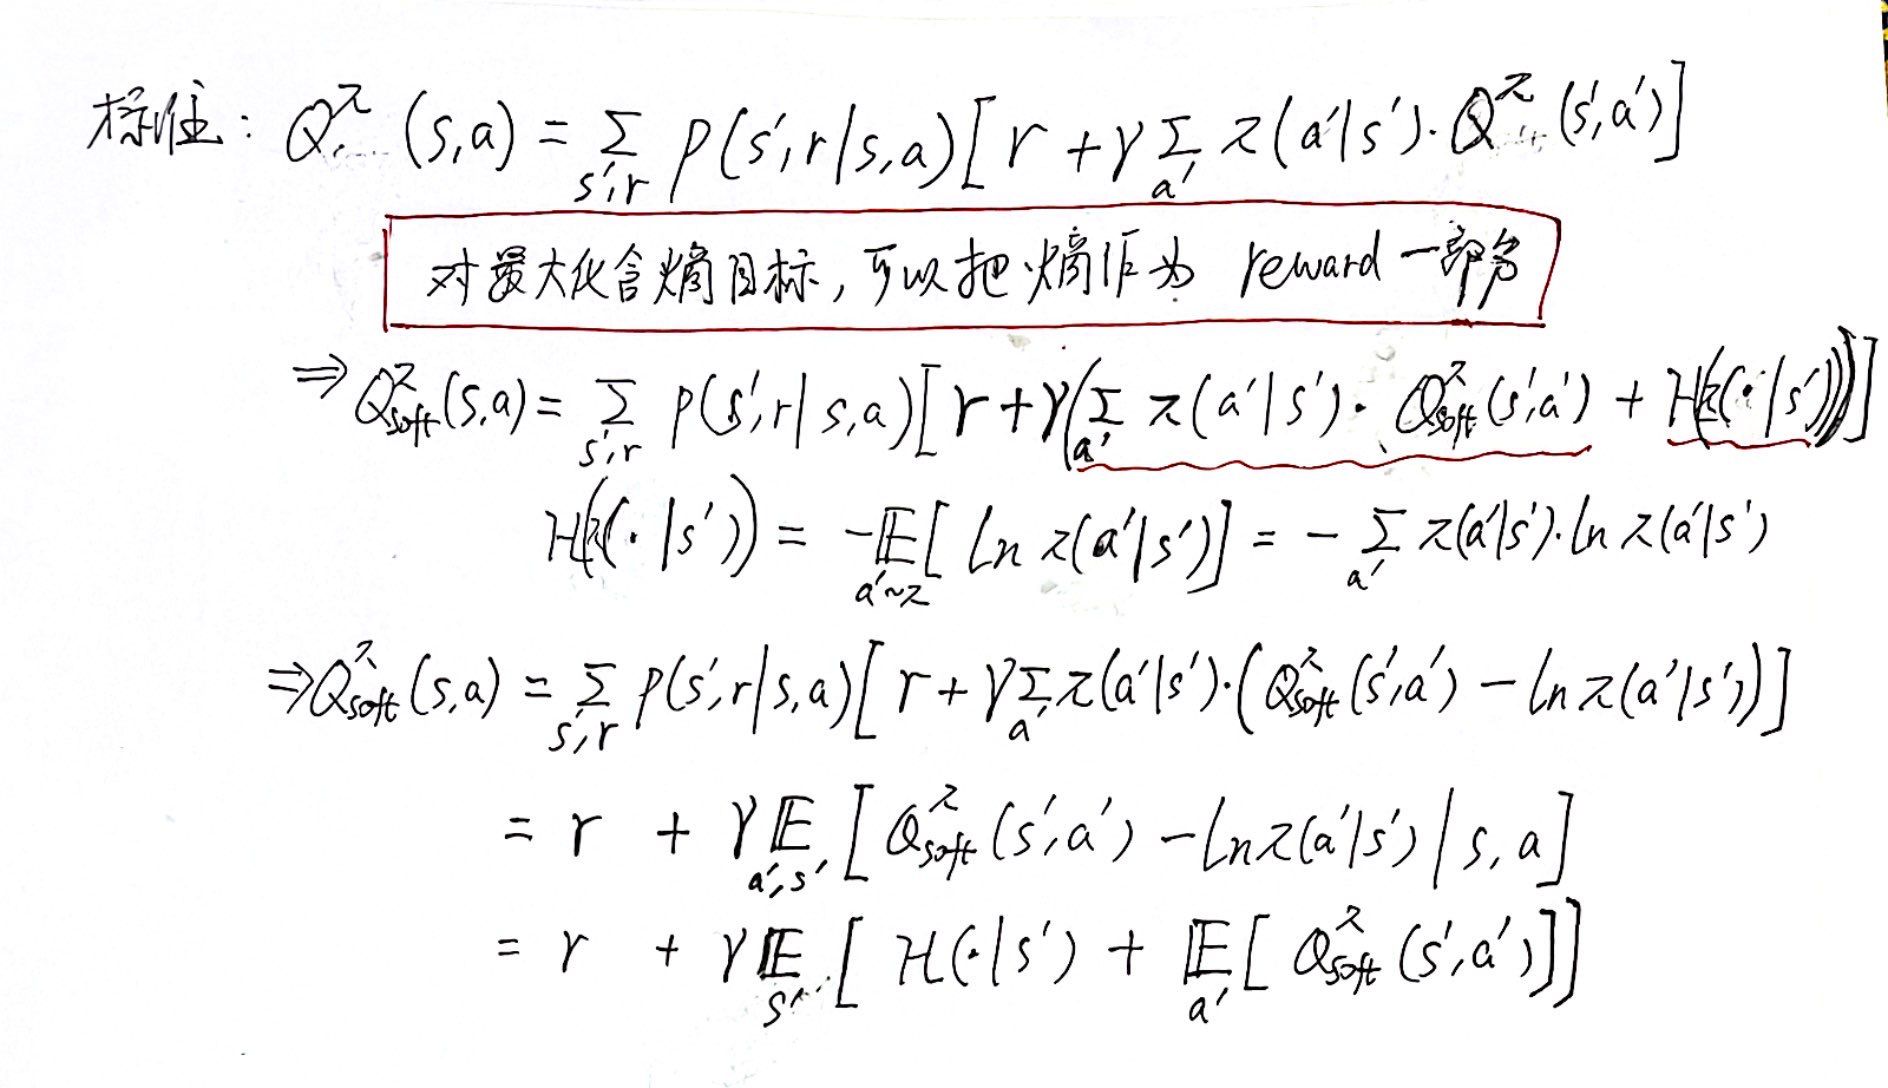 标准: Q^π(s,a) = Σ_{s',r} p(s',r|s,a)[r + γ Σ_{a'} π(a'|s')·Q^π(s',a')]
对最大化含熵目标,可以把熵作为 reward 一部分
⇒ Q^π_soft(s,a) = Σ_{s',r} p(s',r|s,a)[r + γ(Σ_{a'} π(a'|s')·Q^π_soft(s',a') + H(π(·|s')))]
H(π(·|s')) = -𝔼_{a'~π}[ln π(a'|s')] = -Σ_{a'} π(a'|s')·ln π(a'|s')
⇒ Q^π_soft(s,a) = Σ_{s',r} p(s',r|s,a)[r + γ Σ_{a'} π(a'|s')·(Q^π_soft(s',a') - ln π(a'|s'))]
= r + γ 𝔼_{a',s'}[Q^π_soft(s',a') - ln π(a'|s') | s,a]
= r + γ 𝔼_{s'}[H(·|s') + 𝔼_{a'}[Q^π_soft(s',a')]]